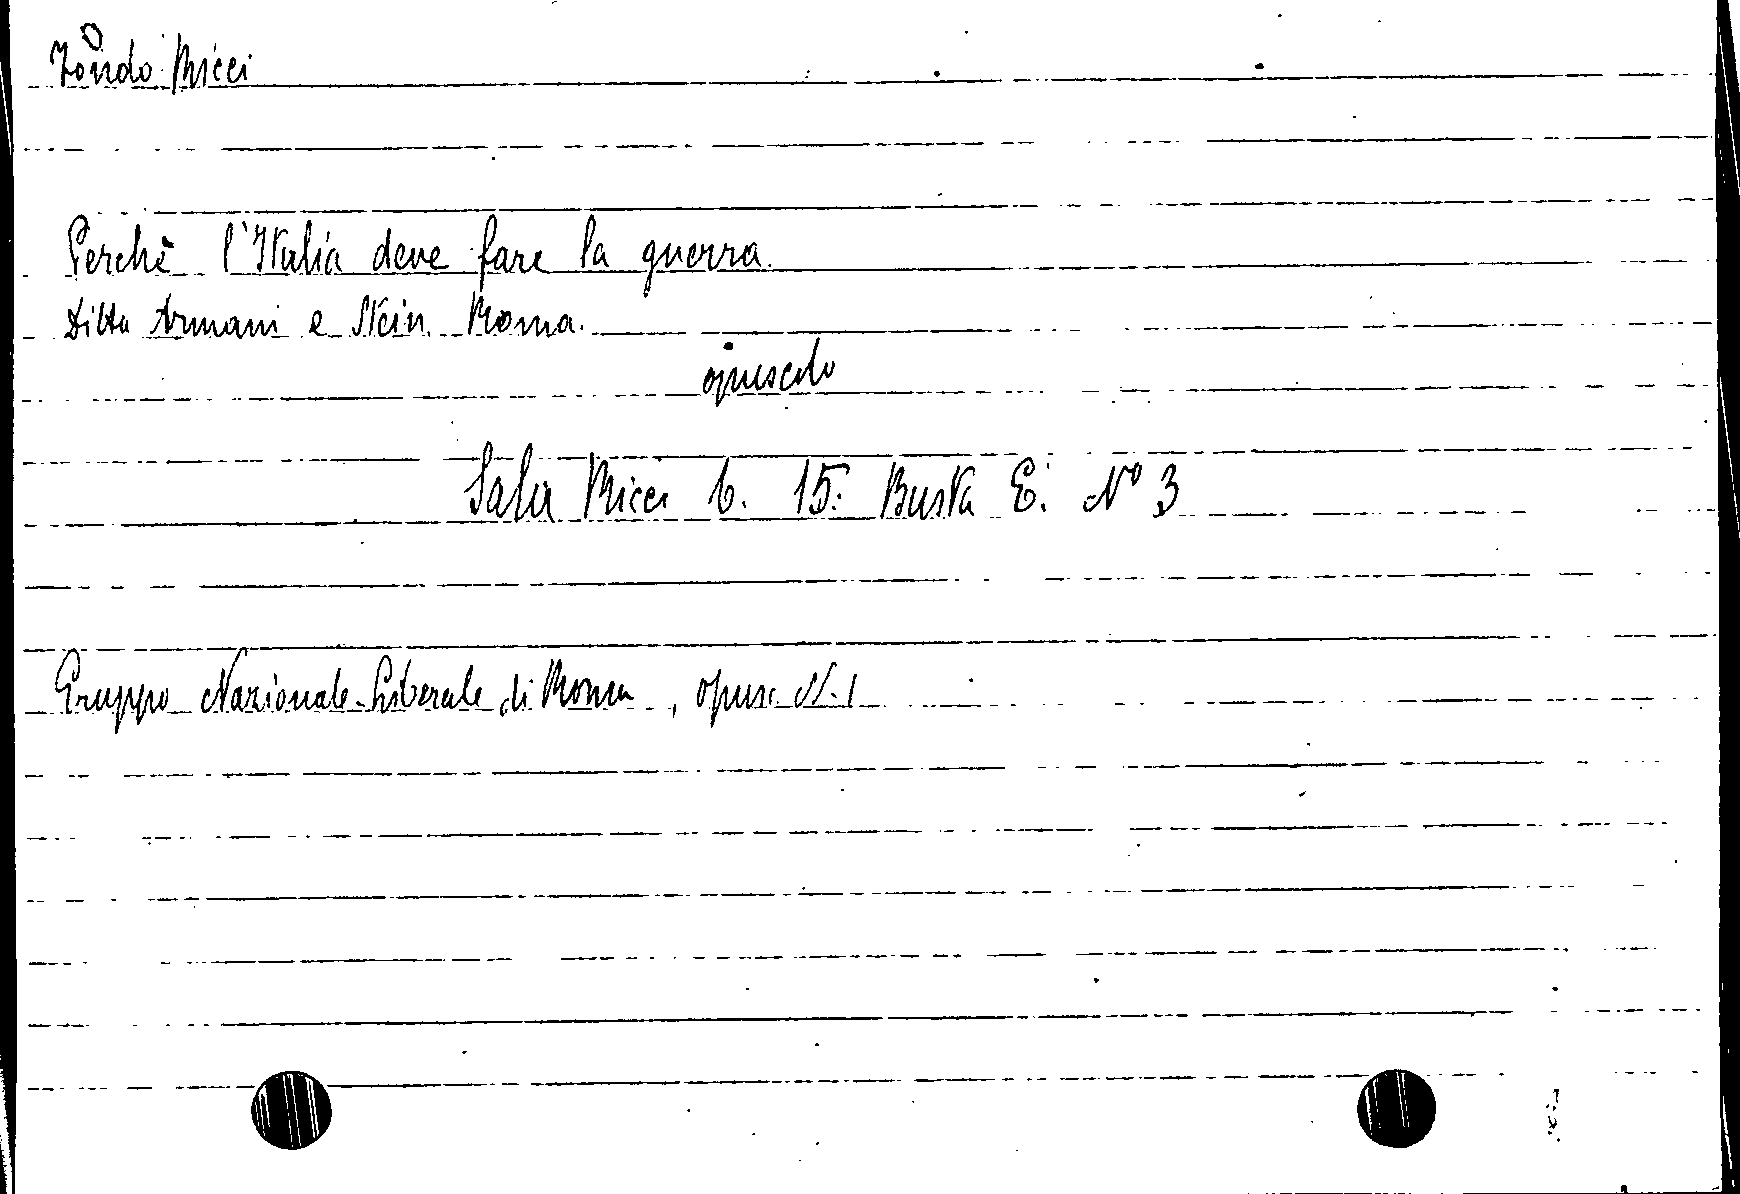 Fondo Ricci
Perchè l'Italia deve fare la guerra.
Ditta Armani e Stein Roma.
opuscolo
Sala Ricci b. 15. Busta E. N° 3
Gruppo Nazionale-Liberale di Roma, opusc. N. 1